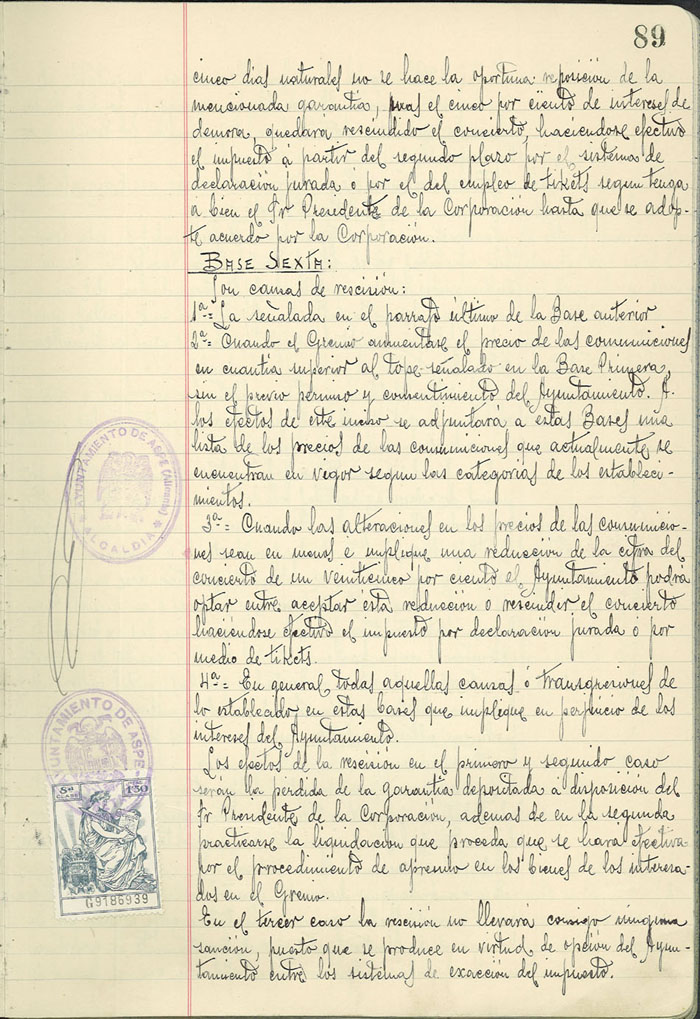 89
cinco dias naturales no se hace la oportuna reposición de la
mencionada garantía, mas el cinco por ciento de intereses de
demora, quedará rescindido el concierto, haciendose efectivo
el impuesto á partir del segundo plazo por el sistema de
declaración jurada ó por el del empleo de tikets segun tenga
á bien el Sr Presidente de la Corporación hasta que se adop-
te acuerdo por la Corporación.
BASE SEXTA:
Son causas de rescisión:
1ª= La señalada en el parrafo último de la Base anterior
2ª= Cuando el Gremio aumentase el precio de las consumiciones
en cuantía superior al tope señalado en la Base Primera,
sin el previo permiso y consentimiento del Ayuntamiento. A
los efectos de este inciso se adjuntará a estas Bases una
lista de los precios de las consumiciones que actualmente se
encuentran en vigor segun las categorias de los estableci-
mientos.
3ª= Cuando las alteraciones en los precios de las consumicio-
nes sean en menos é implique una reducción de la cifra del
concierto de un veinticinco por ciento el Ayuntamiento podrá
optar entre aceptar ésta reducción o rescindir el concierto
haciéndose efectivo el impuesto por declaración jurada ó por
medio de tikets.
4ª= En general todas aquellas causas ó transgresiones de
lo establecido en estas bases que implique en perjuicio de los
intereses del Ayuntamiento.
Los efectos de la rescisión en el primero y segundo caso
serán la pérdida de la garantía depositada á disposición del
Sr Presidente de la Corporación, ademas de en la segunda
practicarse la liquidacion que proceda que se hará efectiva
por el procedimiento de apremio en los bienes de los interesa-
dos en el Gremio.
En el tercer caso la rescisión no llevará consigo ninguna
sanción, puesto que se produce en virtud de opción del Ayun-
tamiento entre los sistemas de exacción del impuesto.
AYUNTAMIENTO DE ASPE (Alicante)
* ALCALDIA *
AYUNTAMIENTO DE ASPE
8ª CLASE
1'50
G9186939